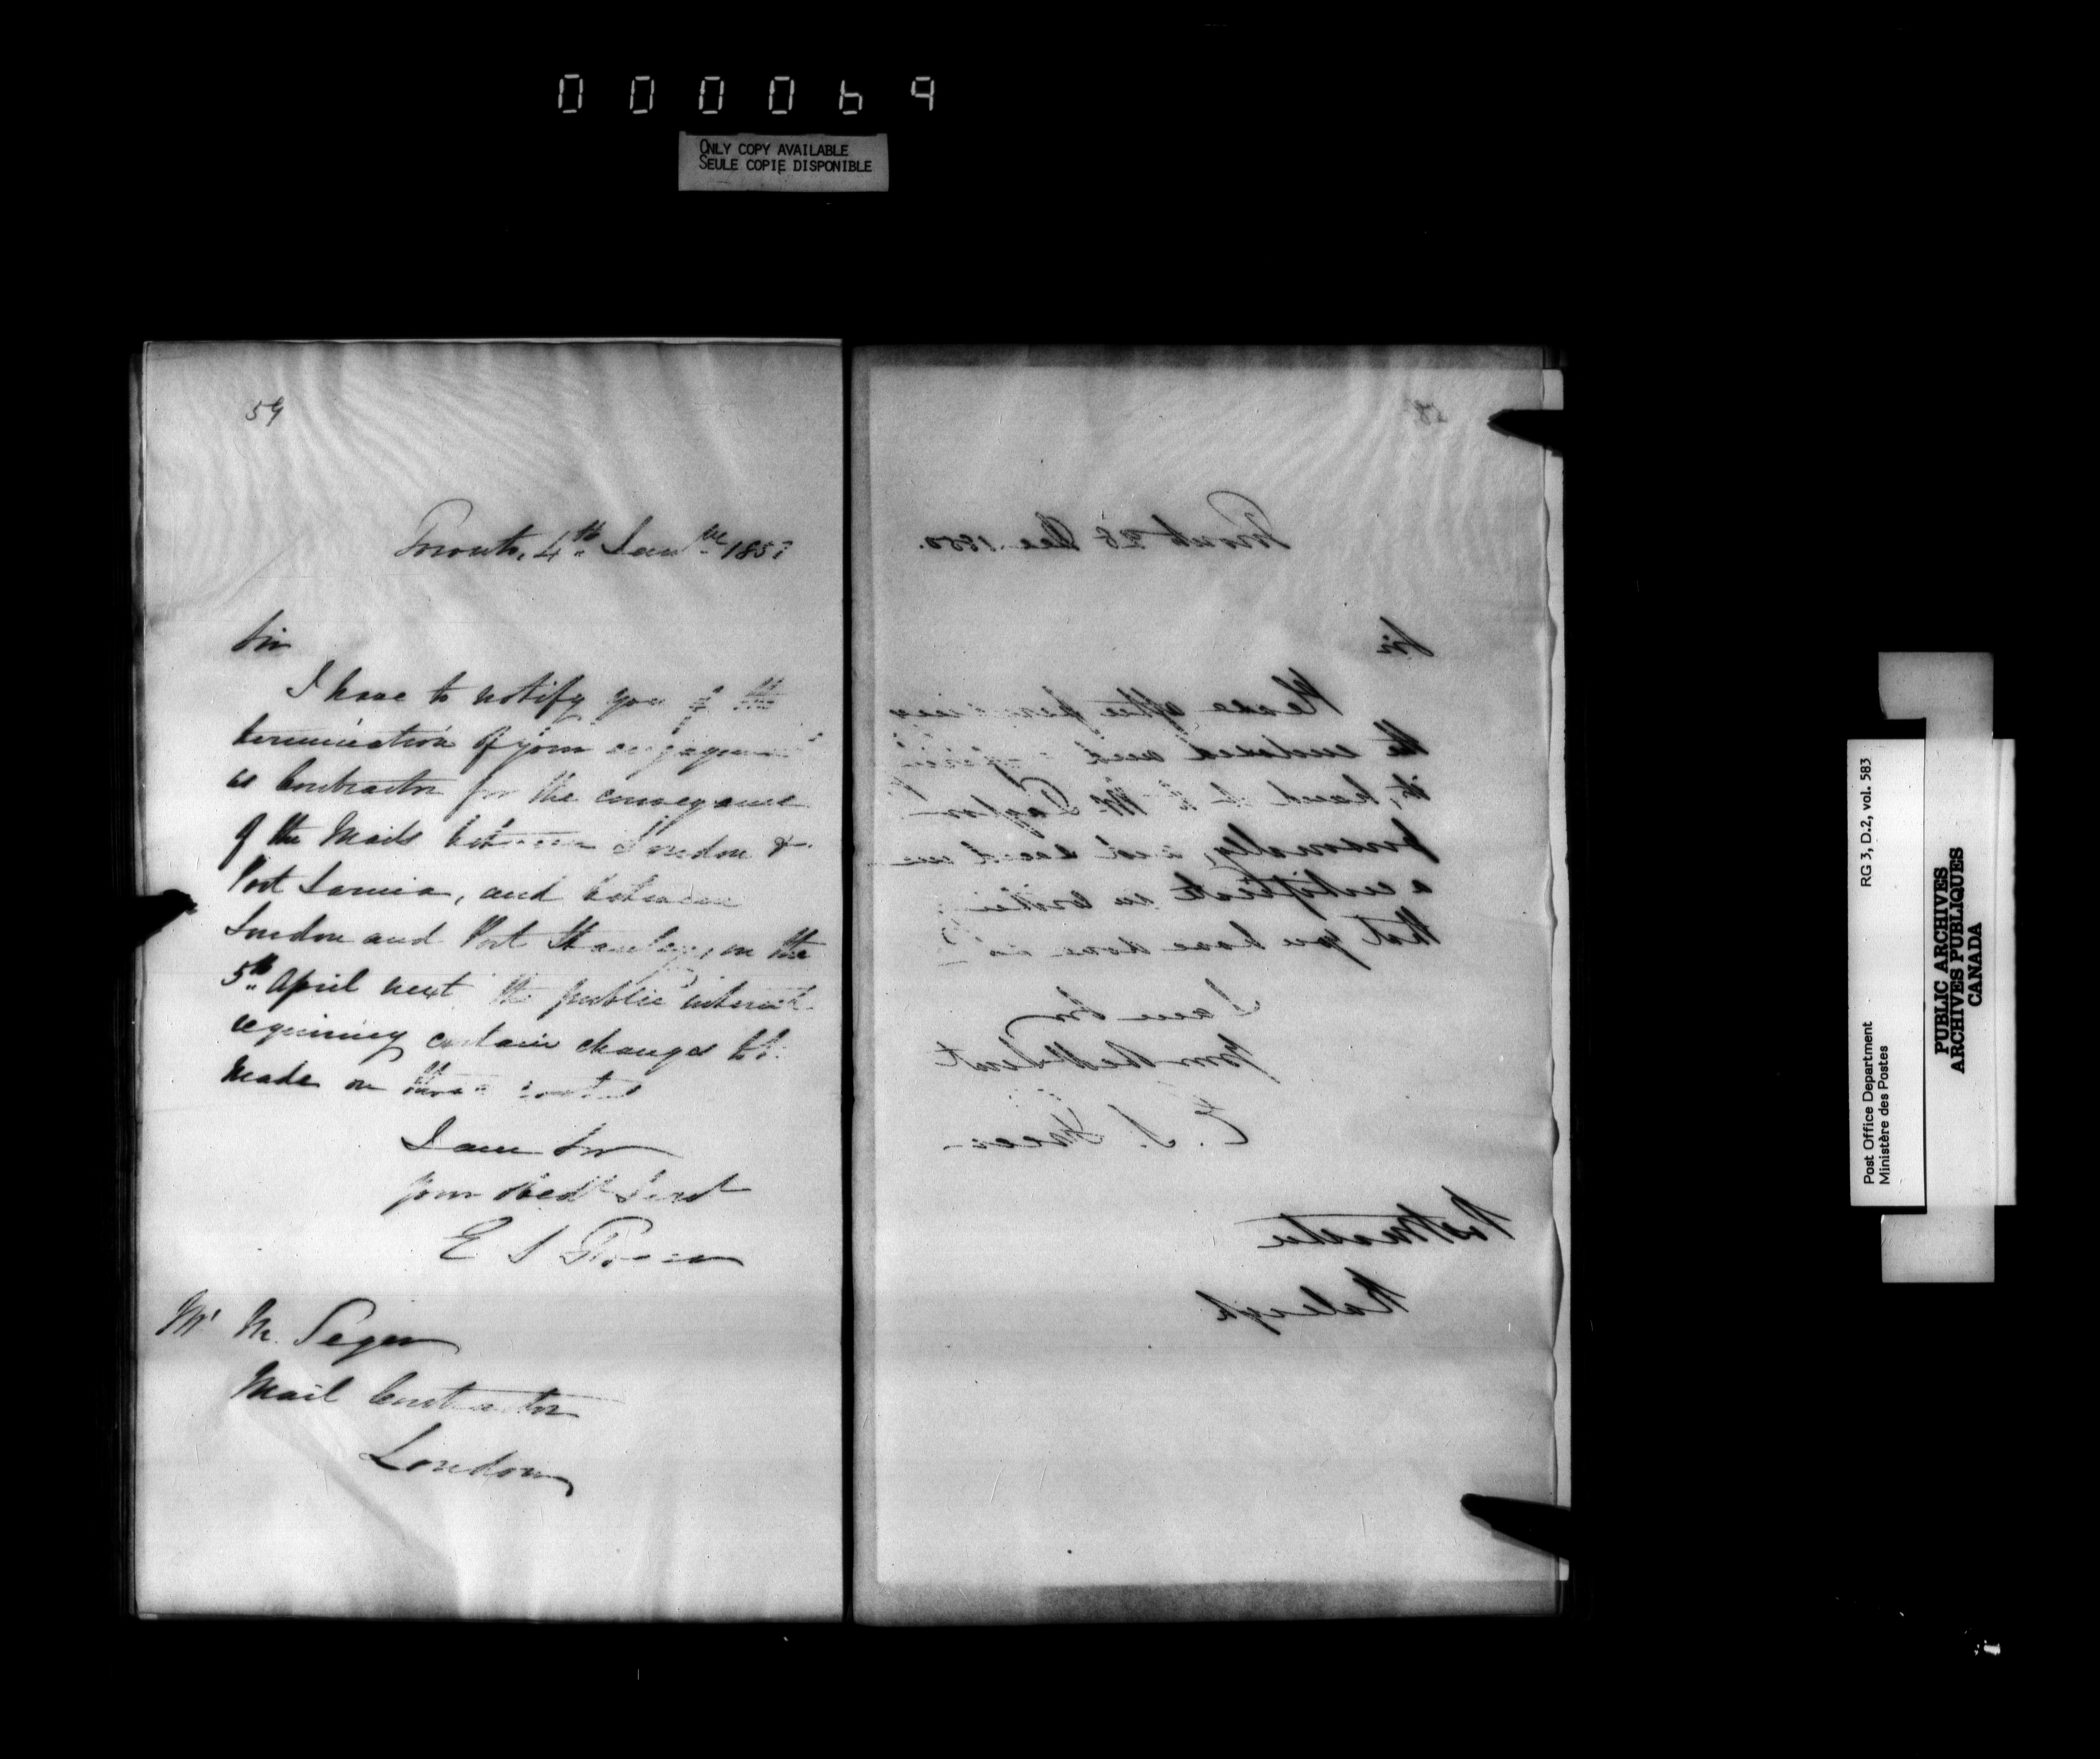 000069
ONLY COPY AVAILABLE
SEULE COPIE DISPONIBLE
59
Toronto, 4th Jany 1851
Sir
I have to notify you of the
termination of your engagement
as Contractor for the conveyance
of the Mails between London &
Port Sarnia, and between
London and Port Stanley, on the
5th April next the public interest
requiring certain changes to be
made on these routes
I am Sir
your obedt Servt
E S Freer
Mr M. Seger
Mail Contractor
London
58
Toronto 28 Dec. 1850.
Sir
Please after perusing
the enclosed and
it, hand it to Mr Taylor
personally, and send me
a certificate in writing
that you have done so
I am Sir
Your Obedt Servt
E. S. Freer
Postmaster
Raleigh
Post Office Department
Ministère des Postes
RG 3, D.2, vol. 583
PUBLIC ARCHIVES
ARCHIVES PUBLIQUES
CANADA